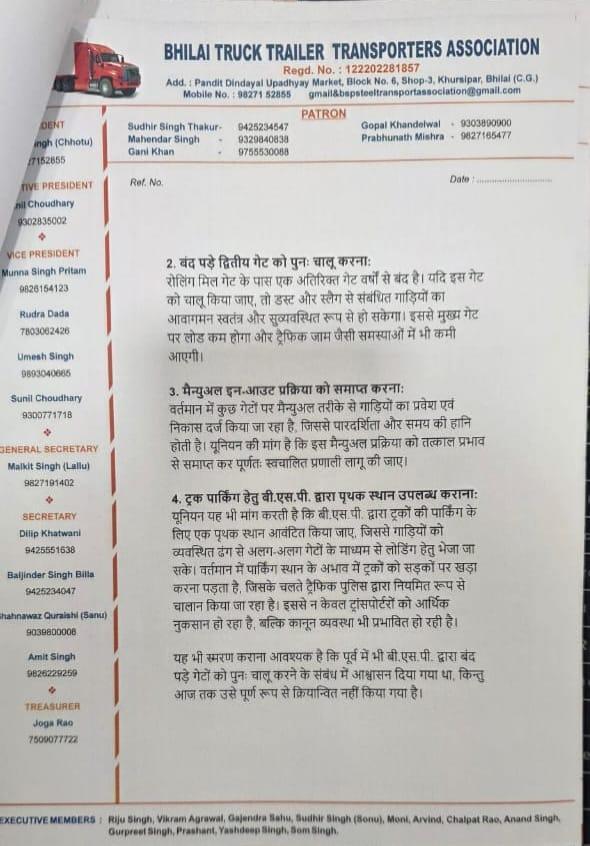 BHILAI TRUCK TRAILER TRANSPORTERS ASSOCIATION
Regd. No. : 122202281857
Add. : Pandit Dindayal Upadhyay Market, Block No. 6, Shop-3, Khursipar, Bhilai (C.G.)
Mobile No. : 98271 52855 gmail&bspsteeltransportassociation@gmail.com
PATRON
Sudhir Singh Thakur- 9425234547
Mahendar Singh - 9329840838
Gani Khan - 9755530088
Gopal Khandelwal - 9303890900
Prabhunath Mishra - 9827165477
DENT
ingh (Chhotu)
7152855
TIVE PRESIDENT
nil Choudhary
9302835002
VICE PRESIDENT
Munna Singh Pritam
9826154123
Rudra Dada
7803062426
Umesh Singh
9893040665
Sunil Choudhary
9300771718
GENERAL SECRETARY
Malkit Singh (Lallu)
9827191402
SECRETARY
Dilip Khatwani
9425551638
Baljinder Singh Billa
9425234047
Shahnawaz Quraishi (Sanu)
9039800006
Amit Singh
9826229259
TREASURER
Joga Rao
7509077722
Ref. No.
Date : ............................
2. बंद पड़े द्वितीय गेट को पुनः चालू करना:
रोलिंग मिल गेट के पास एक अतिरिक्त गेट वर्षों से बंद है। यदि इस गेट
को चालू किया जाए, तो डस्ट और स्लैग से संबंधित गाड़ियों का
आवागमन स्वतंत्र और सुव्यवस्थित रूप से हो सकेगा। इससे मुख्य गेट
पर लोड कम होगा और ट्रैफिक जाम जैसी समस्याओं में भी कमी
आएगी।
3. मैन्युअल इन-आउट प्रक्रिया को समाप्त करना:
वर्तमान में कुछ गेटों पर मैन्युअल तरीके से गाड़ियों का प्रवेश एवं
निकास दर्ज किया जा रहा है, जिससे पारदर्शिता और समय की हानि
होती है। यूनियन की मांग है कि इस मैन्युअल प्रक्रिया को तत्काल प्रभाव
से समाप्त कर पूर्णतः स्वचालित प्रणाली लागू की जाए।
4. ट्रक पार्किंग हेतु बी.एस.पी. द्वारा पृथक स्थान उपलब्ध कराना:
यूनियन यह भी मांग करती है कि बी.एस.पी. द्वारा ट्रकों की पार्किंग के
लिए एक पृथक स्थान आवंटित किया जाए, जिससे गाड़ियों को
व्यवस्थित ढंग से अलग-अलग गेटों के माध्यम से लोडिंग हेतु भेजा जा
सके। वर्तमान में पार्किंग स्थान के अभाव में ट्रकों को सड़कों पर खड़ा
करना पड़ता है, जिसके चलते ट्रैफिक पुलिस द्वारा नियमित रूप से
चालान किया जा रहा है। इससे न केवल ट्रांसपोर्टरों को आर्थिक
नुकसान हो रहा है, बल्कि कानून व्यवस्था भी प्रभावित हो रही है।
यह भी स्मरण कराना आवश्यक है कि पूर्व में भी बी.एस.पी. द्वारा बंद
पड़े गेटों को पुनः चालू करने के संबंध में आश्वासन दिया गया था, किन्तु
आज तक उसे पूर्ण रूप से क्रियान्वित नहीं किया गया है।
EXECUTIVE MEMBERS : Riju Singh, Vikram Agrawal, Gajendra Sahu, Sudhir Singh (Sonu), Moni, Arvind, Chalpat Rao, Anand Singh,
Gurpreet Singh, Prashant, Yashdeep Singh, Som Singh.